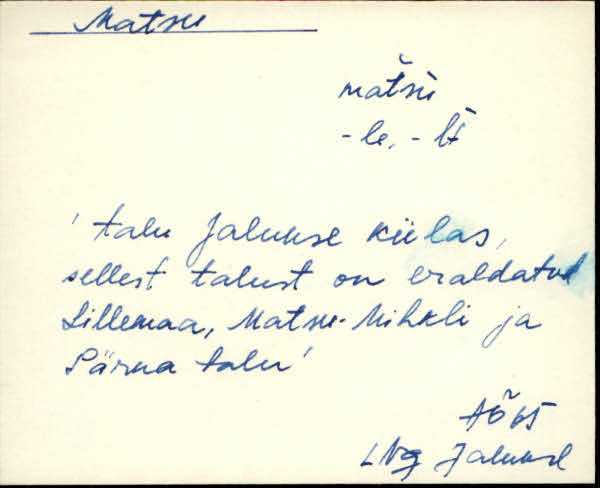 Matsu
matsu
-le, -lt
' talu Jalukse külas,
sellest talust on eraldatud
Lillemaa, Matsu-Mihkli ja
Pärna talu'
AÕ 65
LNg Jalukse